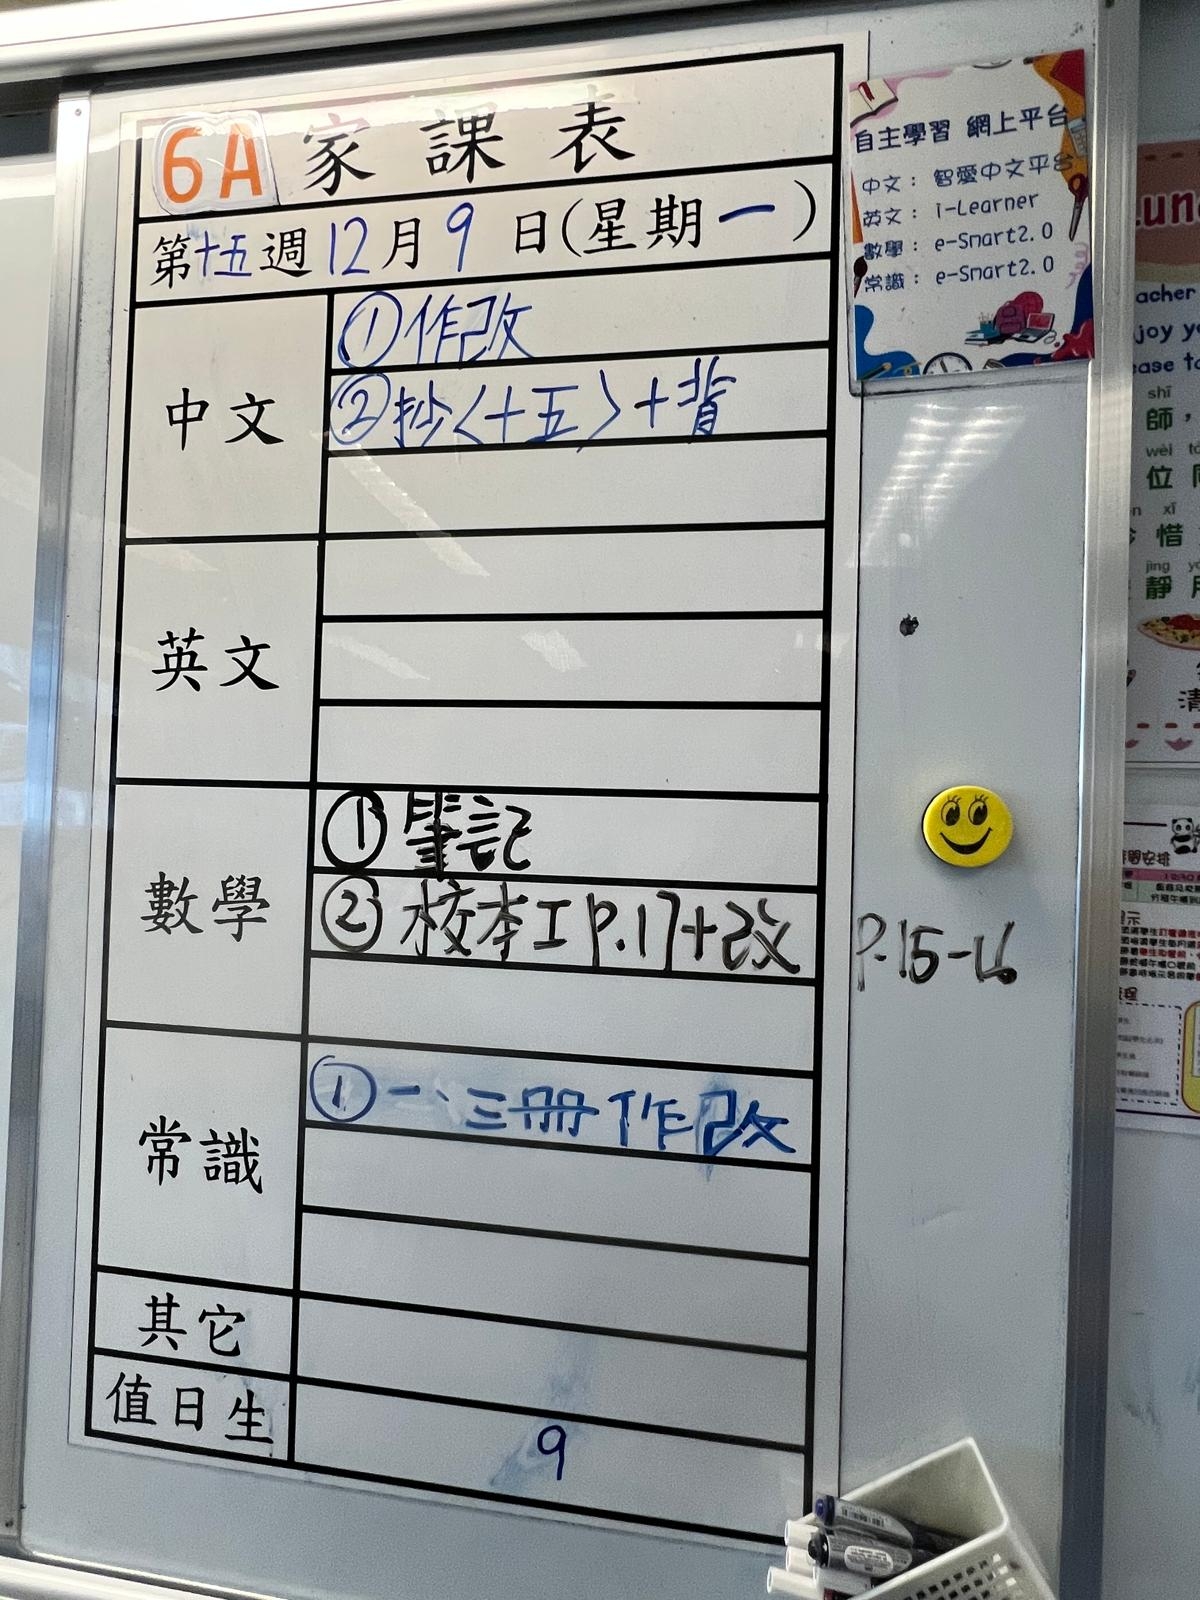 6A 家課表
第十五週12月9日(星期一)
中文
①作改
②抄〈十五〉+背
英文
數學
①筆記
②校本工P.17+改
P.15-16
常識
①一、三冊作改
其它
值日生
9
自主學習 網上平台
中文： 智愛中文平台
英文： i-Learner
數學： e-Smart2.0
常識： e-Smart2.0
acher
joy yo
ease to
shī
師，
wèi
位
xī
惜
jìng
靜